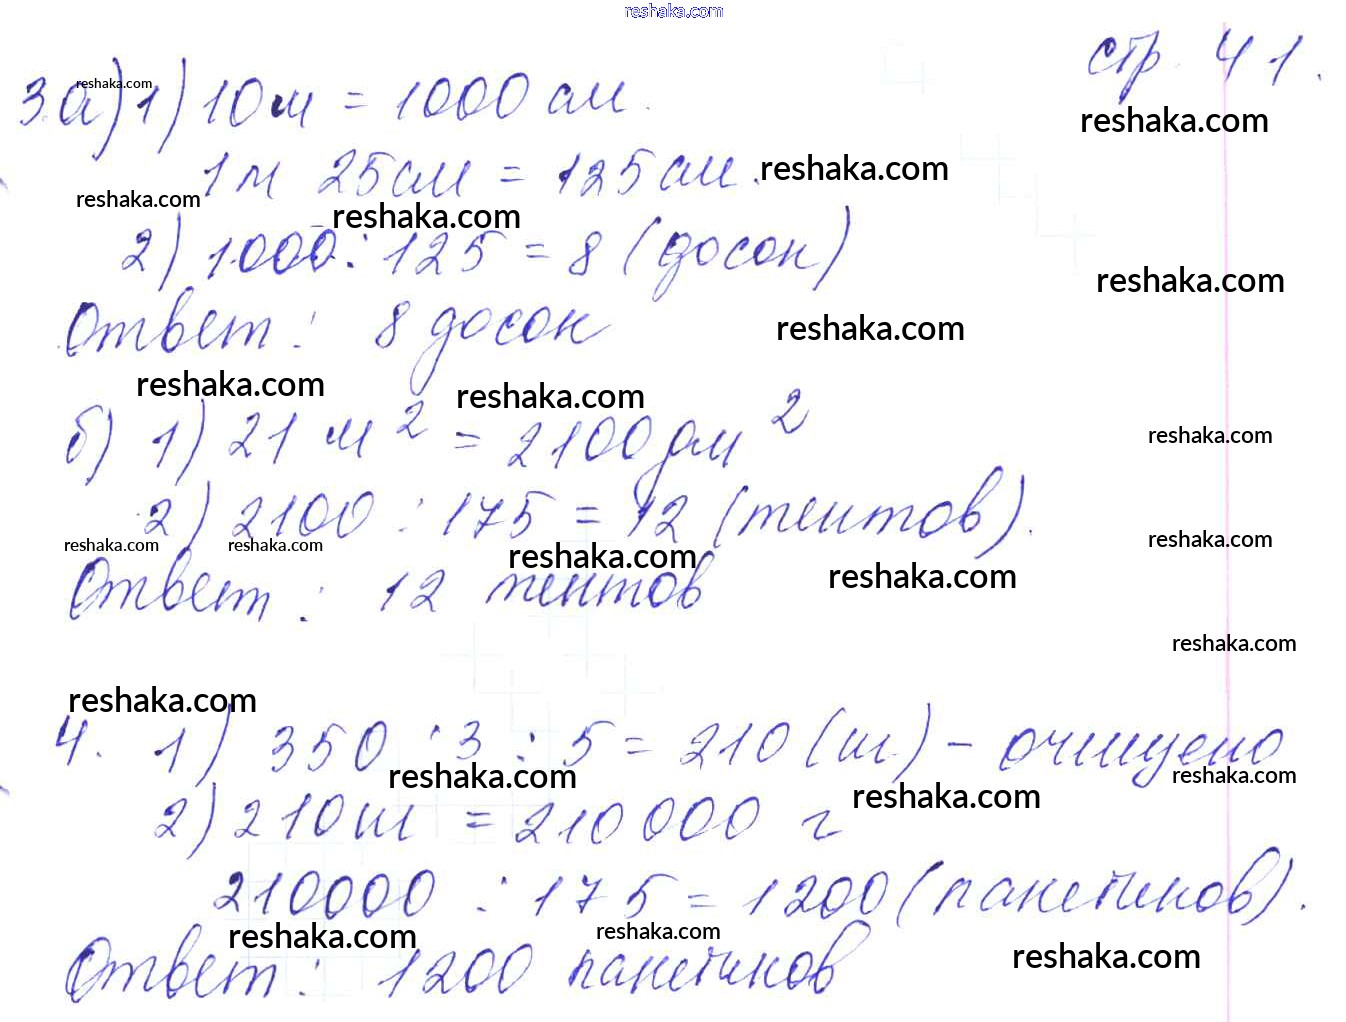 reshaka.com
стр. 41.
3.а) 1) 10 м = 1000 см.
reshaka.com
reshaka.com
1 м 25 см = 125 см.
reshaka.com
reshaka.com
reshaka.com
2) 1000 : 125 = 8 (досок)
reshaka.com
Ответ: 8 досок
reshaka.com
reshaka.com
reshaka.com
б) 1) 21 м² = 2100 дм²
reshaka.com
2) 2100 : 175 = 12 (тентов).
reshaka.com
reshaka.com
reshaka.com
reshaka.com
Ответ: 12 тентов
reshaka.com
reshaka.com
reshaka.com
4. 1) 350 : 3 : 5 = 210 (т) - очищено
reshaka.com
reshaka.com
reshaka.com
2) 210 т = 210 000 г
210000 : 175 = 1200 (пакетиков).
reshaka.com
reshaka.com
reshaka.com
Ответ: 1200 пакетиков